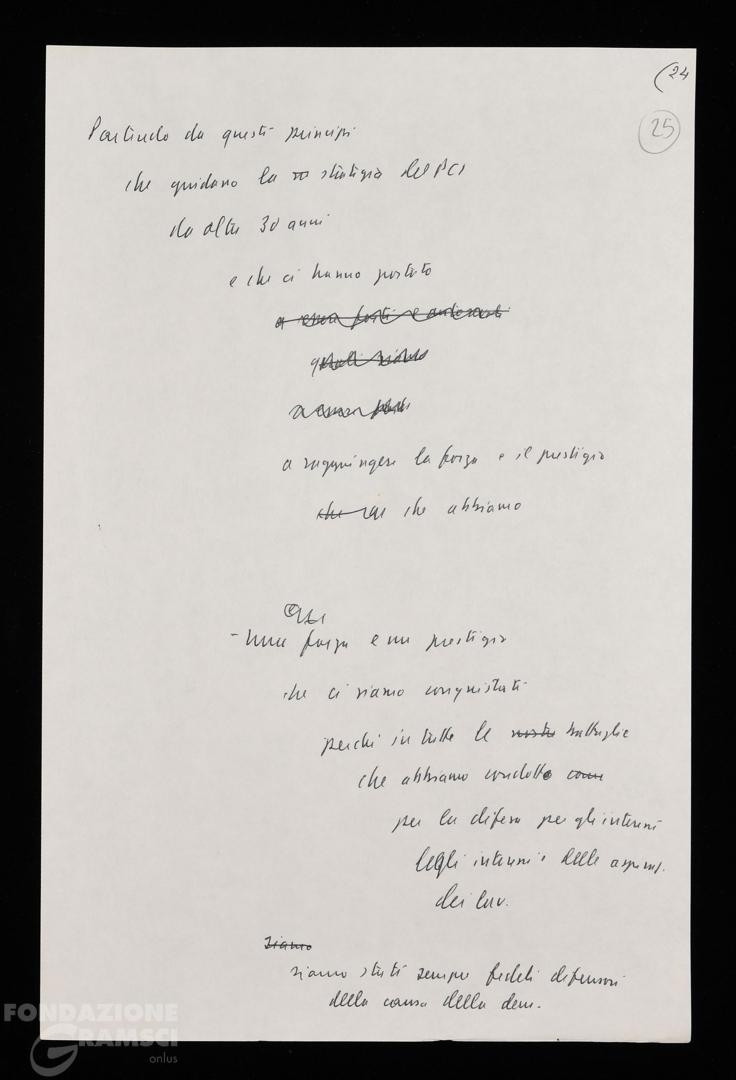 (24
25
Partendo da questi principi
che guidano la strategia del PCI
da oltre 30 anni
e che ci hanno portato
a essere forti e
a essere
a raggiungere la forza e il prestigio
che che abbiamo
- Una forza e un prestigio
che ci siamo conquistati
perché in tutte le nostre battaglie
che abbiamo condotto come
per la difesa per gli interessi
degli interessi e delle aspiraz.
dei lav.
siamo
siamo stati sempre fedeli difensori
della causa della dem.
FONDAZIONE
GRAMSCI
onlus